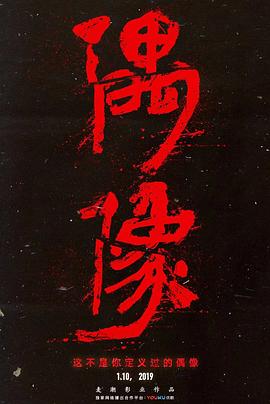 偶
像
这不是你定义过的偶像
1.10, 2019
麦潮影业作品
独家网络播出合作平台:YOUKU优酷